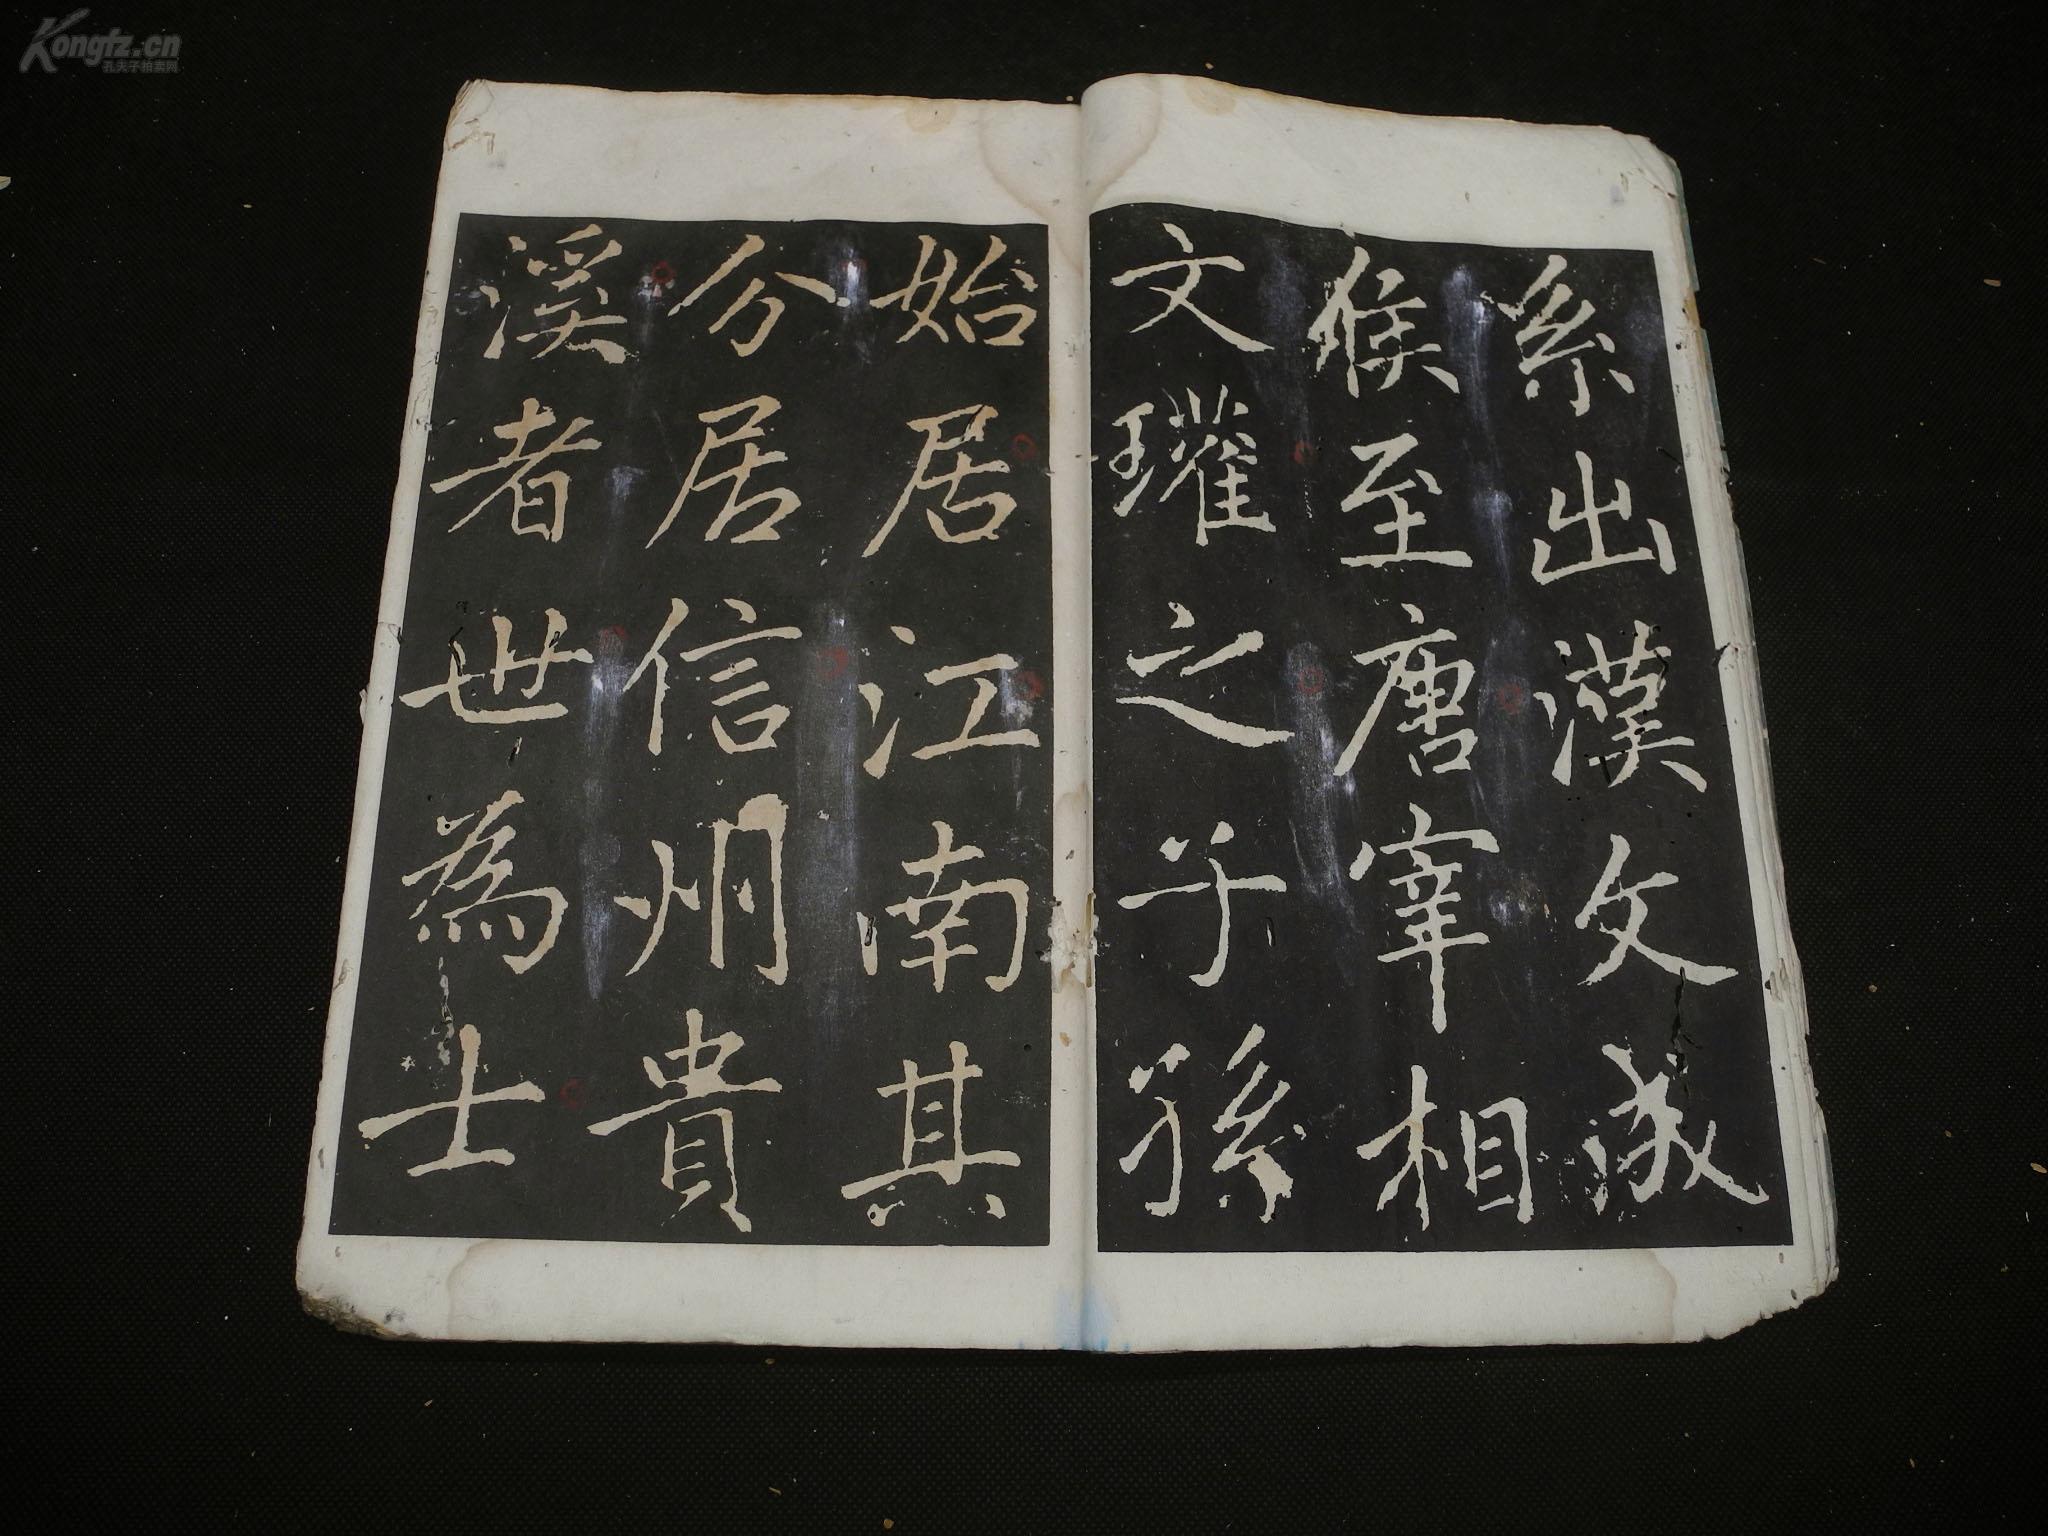 系出漢文成
侯至唐宰相
文瓘之子孫
始居江南其
分居信州貴
溪者世為士
Kongfz.cn
孔夫子拍卖网